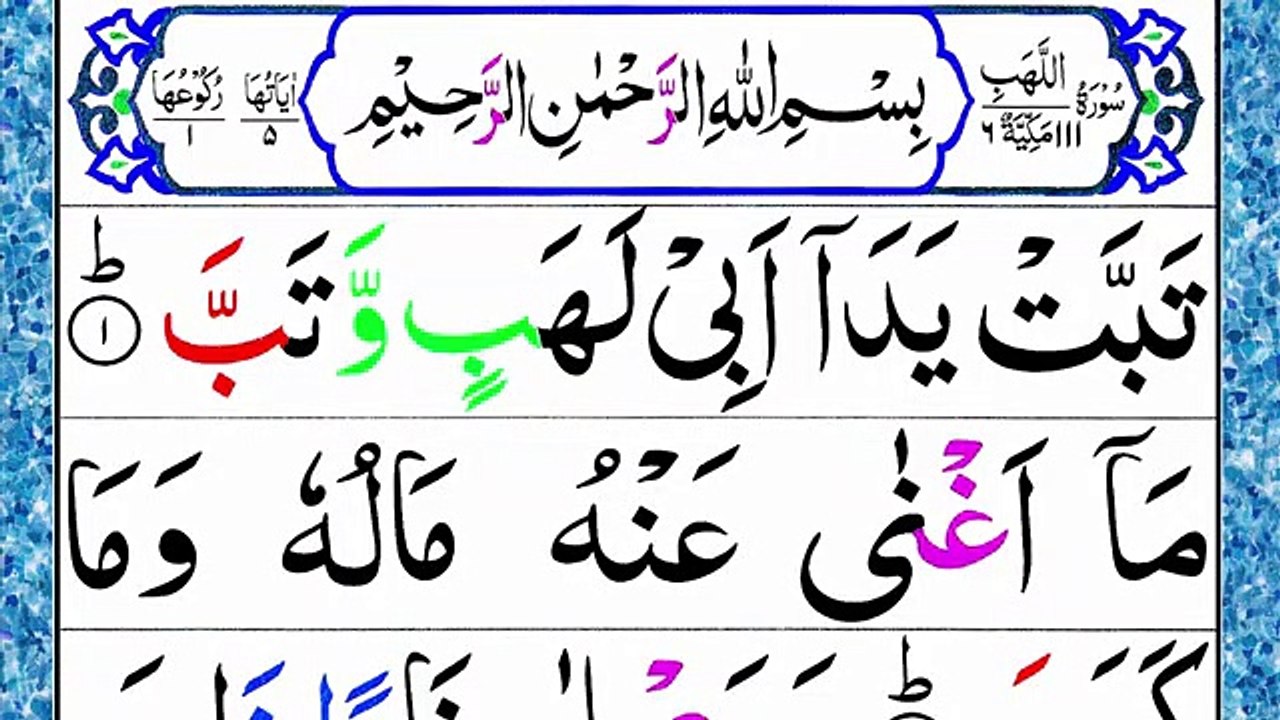 سُوْرَةُ اللَّهَبِ
١١١ مَكِّيَّةٌ ٦
بِسْمِ اللّٰهِ الرَّحْمٰنِ الرَّحِيْمِ
اٰيَاتُهَا ٥
رُكُوْعُهَا ١
تَبَّتْ يَدَآ اَبِیْ لَهَبٍ وَّ تَبَّ ؕ ١
مَاۤ اَغْنٰی عَنْهُ مَالُهٗ وَمَا